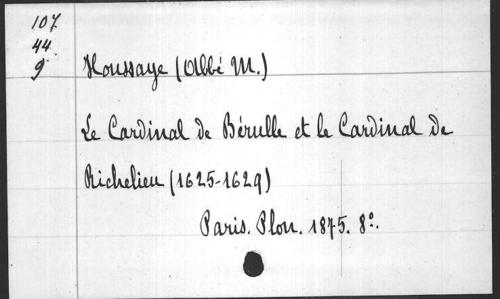 107
44
9
Houssaye (Abbé M.)
Le Cardinal de Bérulle et le Cardinal de
Richelieu (1625-1629)
Paris. Plon. 1875. 8°.